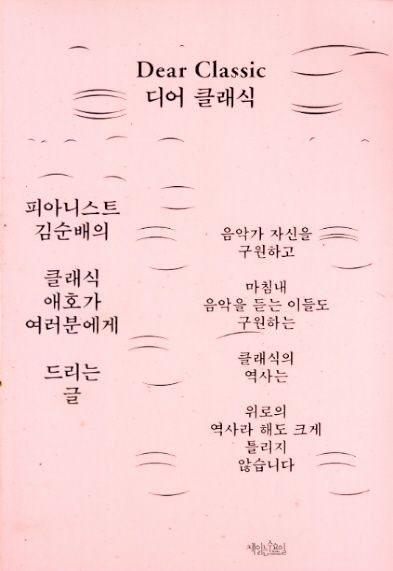 Dear Classic
디어 클래식
피아니스트
김순배의
클래식
애호가
여러분에게
드리는
글
음악가 자신을
구원하고
마침내
음악을 듣는 이들도
구원하는
클래식의
역사는
위로의
역사라 해도 크게
틀리지
않습니다